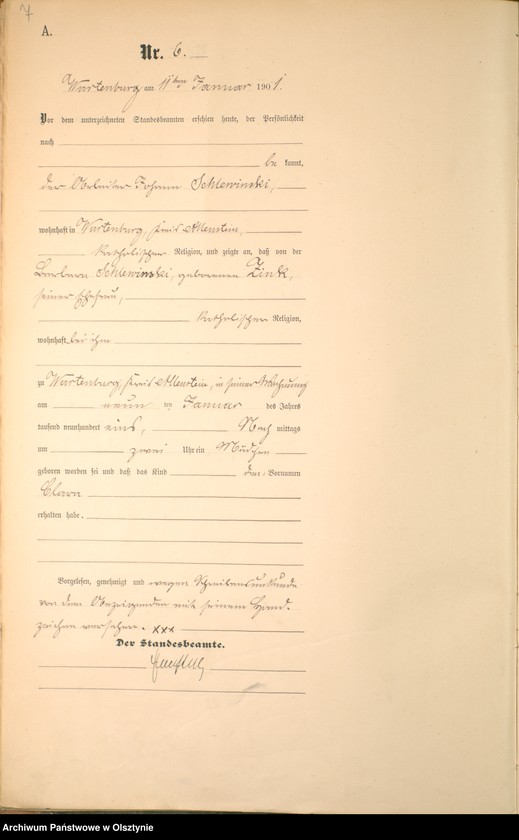 7
A.
Nr. 6.
Wartenburg am 11ten Januar 1901.
Vor dem unterzeichneten Standesbeamten erschien heute, der Persönlichkeit
nach
be kannt,
der Arbeiter Johann Schlewinski,
wohnhaft in Wartenburg, Kreis Allenstein,
katholischer Religion, und zeigte an, daß von der
Barbara Schlewinski, geborenen Zink,
seiner Ehefrau,
katholischer Religion,
wohnhaft bei ihm
zu Wartenburg, Kreis Allenstein, in seiner Wohnung
am neun ten Januar des Jahres
tausend neunhundert eins, Nach mittags
um zwei Uhr ein Mädchen
geboren worden sei und daß das Kind den Vornamen
Clara
erhalten habe.
Vorgelesen, genehmigt und wegen Schreibensunkunde
von dem Anzeigenden mit seinem Hand-
zeichen versehen. xxx
Der Standesbeamte.
Archiwum Państwowe w Olsztynie